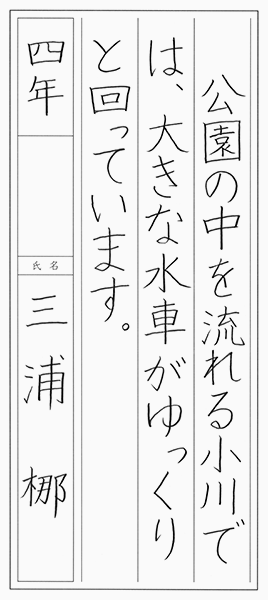 公園の中を流れる小川で
は、大きな水車がゆっくり
と回っています。
四年
氏名
三浦 梛